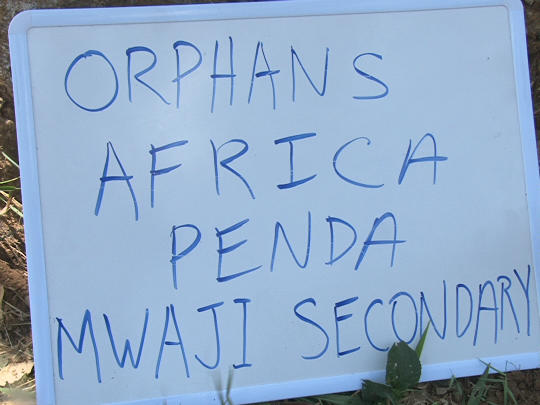 ORPHANS
AFRICA
PENDA
MWAJI SECONDARY